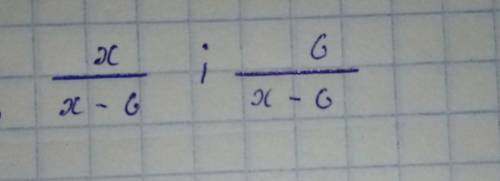 x/(x - 6) і 6/(x - 6)